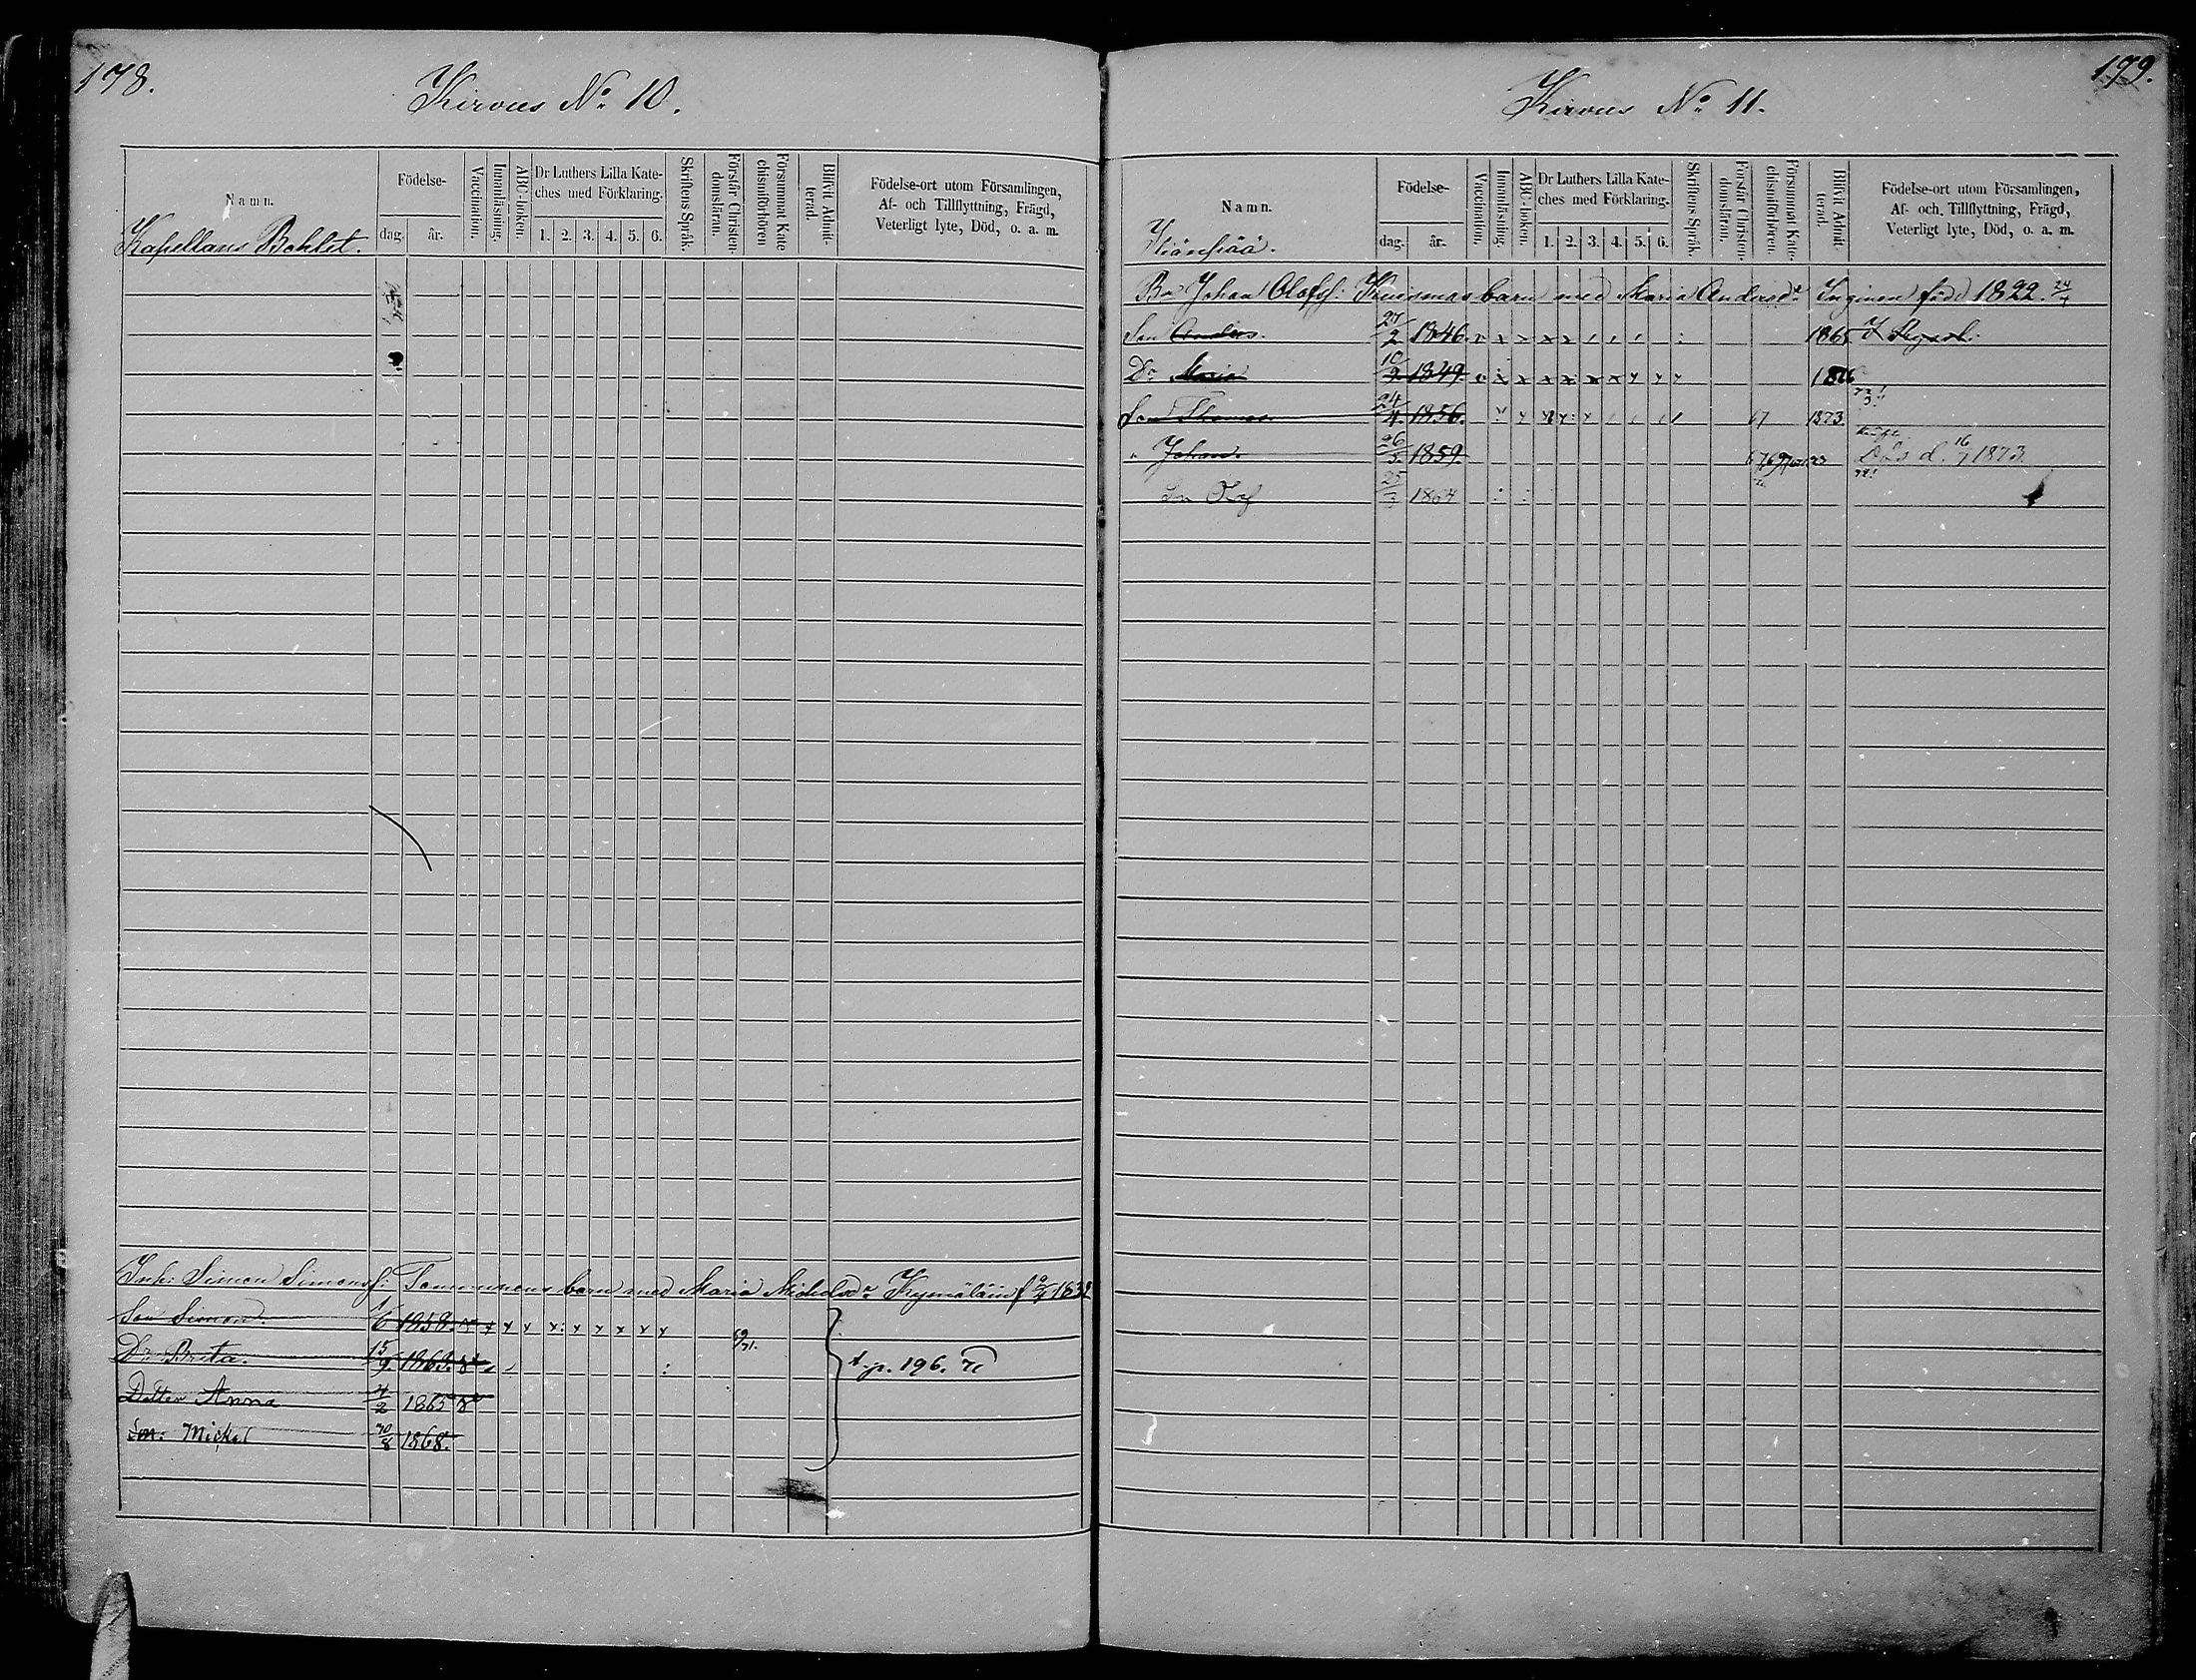 178.
Kirvus No 10.
Namn.
Kapellans Bohlet.
Födelse-
dag.
år.
Vaccination.
Innanläsning.
ABC-boken.
Dr Luthers Lilla Kate-
ches med Förklaring.
1. 2. 3. 4. 5. 6.
Skriftens Språk.
Förstår Christen-
domsläran.
Försummat Kate
chismiförhören
Blifvit Admit-
terad.
Födelse-ort utom Församlingen,
Af- och Tillflyttning, Frägd,
Veterligt lyte, Död, o. a. m.
Inh: Simon Simonsf: Tommonens barn med Maria Michelsdr Kymäläin f 1832
Son Simon. 1/6 1858.
Dr Brita. 15/9 1863.
p. 196.
Dotter Anna 4/2 1865
Son: Mickel 20/8 1868.
179.
Kirvus No 11.
Namn.
Födelse-
dag.
år.
Vaccination.
Innanläsning.
ABC-boken.
Dr Luthers Lilla Kate-
ches med Förklaring.
1. 2. 3. 4. 5. 6.
Skriftens Språk.
Förstår Christen-
domsläran.
Försummat Kate-
chismiförhören.
Blifvit Admit-
terad.
Födelse-ort utom Församlingen,
Af- och Tillflyttning, Frägd,
Veterligt lyte, Död, o. a. m.
Bn Johan Olofsf: Kuismas barn med Maria Andersdr Inginen född 1822. 24/4
Son Andrs. 27/2 1846. 1865
Dr Maria 10/2 1849. 1866
Son Thomas. 24/4 1856. 67 1873.
" Johan. 26/5 1859. Död d. 16/7 1873.
Sn Olof 25/3 1864